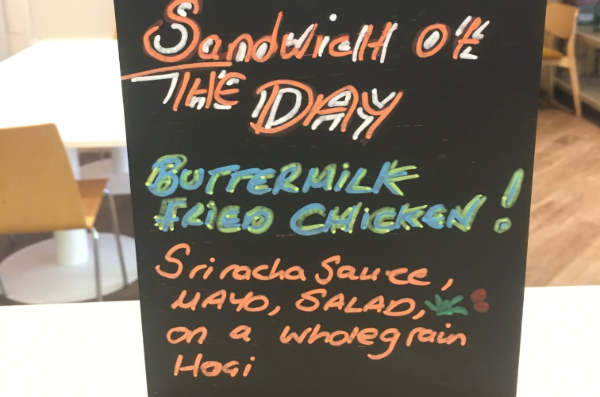 Sandwich of
THE DAY
BUTTERMILK
FRIED CHICKEN!
Sriracha Sauce,
MAYO, SALAD,
on a wholegrain
Hogi